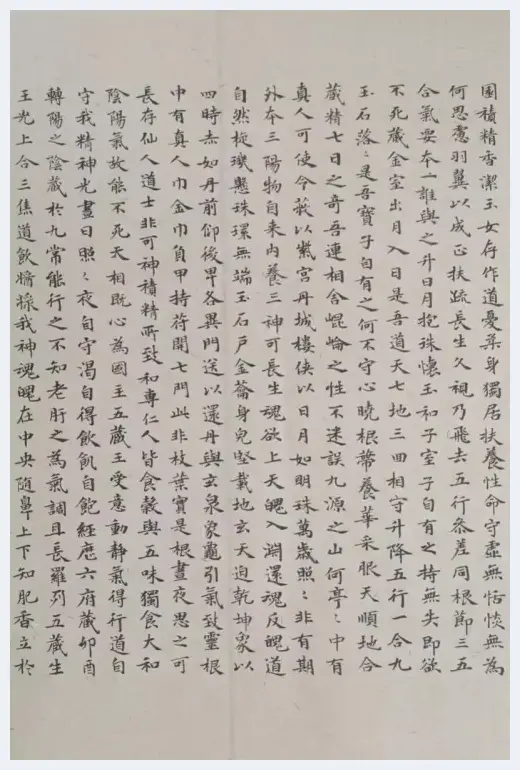 園積精香潔玉女存作道憂柔身獨居扶養性命守虛無恬惔無為
何思慮羽翼以成正扶疏長生久視乃飛去五行參差同根節三五
合氣要本一誰與之升日月抱珠懷玉和子室子自有之持無失即欲
不死藏金室出月入日是吾道天七地三四相守升降五行一合九
玉石落〻是吾寶子自有之何不守心曉根蔕養華采服天順地合
藏精七日之奇吾連相舍崐崘之性不迷誤九源之山何亭〻中有
真人可使令蔽以紫宮丹城樓俠以日月如明珠萬歲照〻非有期
外本三陽物自来內養三神可長生魂欲上天魄入淵還魂反魄道
自然㧢璣懸珠環無端玉石戶金蘥身皃堅載地玄天迫乾坤象以
四時赤如丹前仰後卑各異門送以還丹與玄泉象龜引氣致靈根
中有真人巾金巾負甲持符開七門此非枝葉實是根晝夜思之可
長存仙人道士非可神積精所致和專仁人皆食穀與五味獨食大和
陰陽氣故能不死天相既心為國主五藏王受意動靜氣得行道自
守我精神光晝日照〻夜自守渴自得飲飢自飽經歷六府藏卯酉
轉陽之陰藏於九常能行之不知老肝之為氣調且長羅列五藏生
王光上合三焦道飲醬採我神魂魄在中央随鼻上下知肥香立於